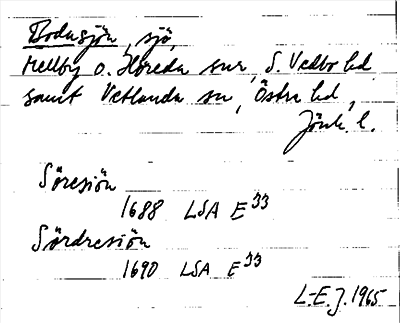 Bodasjön, sjö,
Mellby o. Höreda snr, S. Vedbo hd
samt Vetlanda sn, Östra hd,
Jönk. l.
Söresiön
1688 LSA E 33
Sördresiön
1690 LSA E 33
L-E. J. 1965